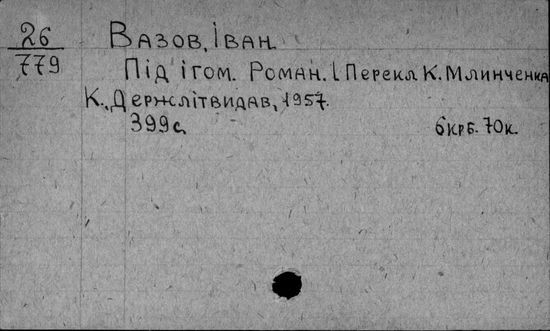 26
779
Вазов, Іван.
Під ігом. Роман. [Перекл. К. Млинченка
К., Держлітвидав, 1957.
399с. 6крб. 70к.